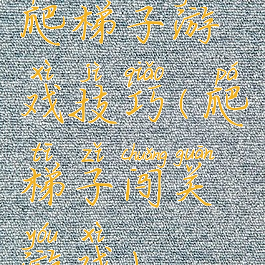 爬梯子游
xì jì qiǎo pá
戏技巧(爬
tī zǐ chuǎng guān
梯子闯关
yóu xì
游戏)